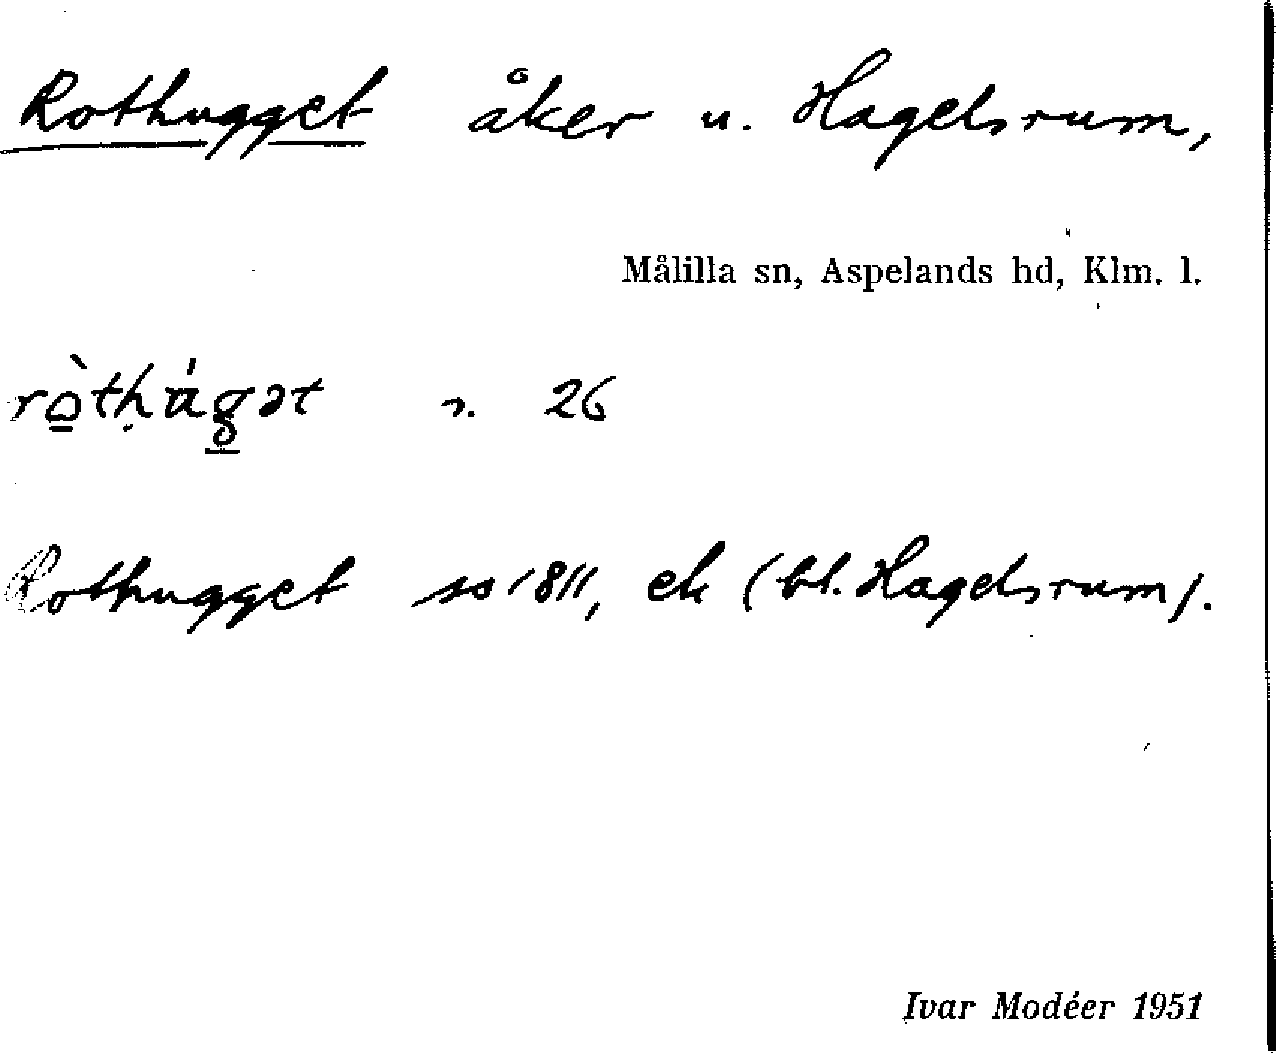 Rothugget åker u. Hagelsrum,
Målilla sn, Aspelands hd, Klm. l.
ròthúgət n. 26
Rothugget so 1811, ek (bl. Hagelsrum).
Ivar Modéer 1951